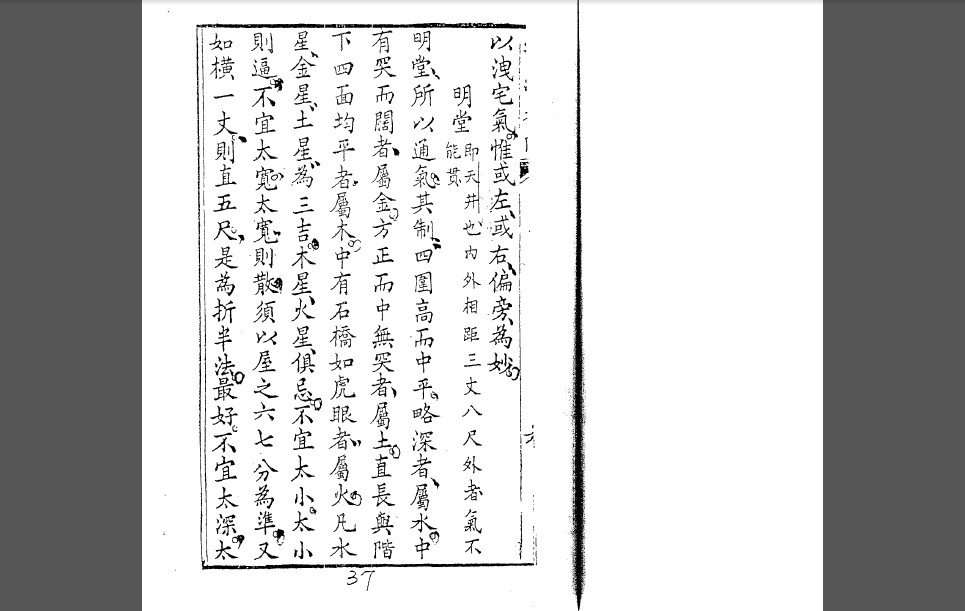 以洩宅氣惟或左或右偏旁為妙
明堂 即天井也內外相距三丈八尺外者氣不
能貫
明堂所以通氣其制四圍高而中平略深者屬水中
有突而闊者屬金方正而中無突者屬土直長與階
下四面均平者屬木中有石橋如虎眼者屬火凡水
星金星土星為三吉木星火星俱忌不宜太小太小
則逼不宜太寬太寬則散須以屋之六七分為準又
如橫一丈則直五尺是為折半法最好不宜太深太
37